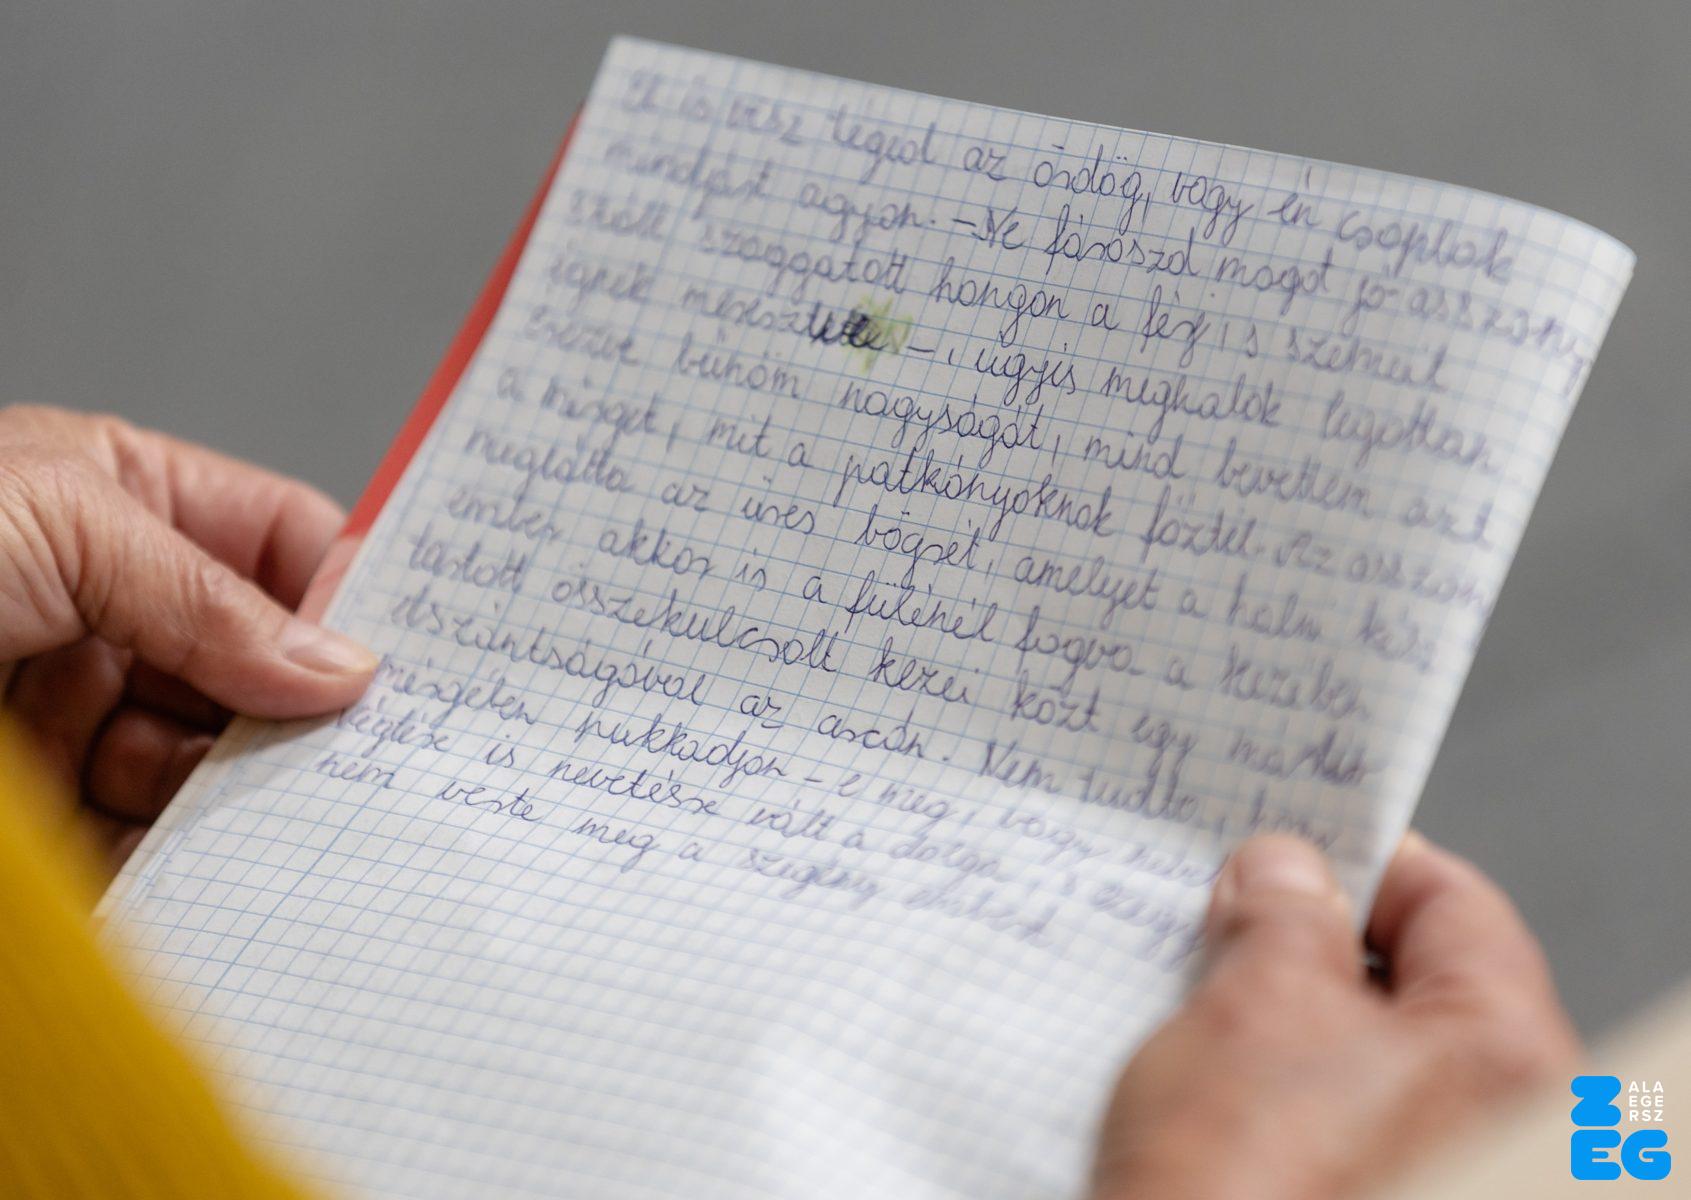 El is visz téged az ördög, vagy én csaplak
mindjárt agyon. - Ne fáraszd magad jó asszony,
szólt szaggatott hangon a férj, s szemeit
égnek meresztette -, úgyis meghalok legottan.
Érezve bűnöm nagyságát, mind bevettem azt
a mérget, mit a patkányoknak főztél. Az asszony
meglátta az üres bögrét, amelyet a halni kész
ember akkor is a fülénél fogva a kezében
tartott összekulcsolt kezei közt egy mártír
elszántságával az arcán. Nem tudta, hogy
mérgében pukkadjon-e meg, vagy
végtére is nevetésre vált a dolga, s ezúgy
nem verte meg a szegény embert.
Z ALA
EGE
RSZ
EG